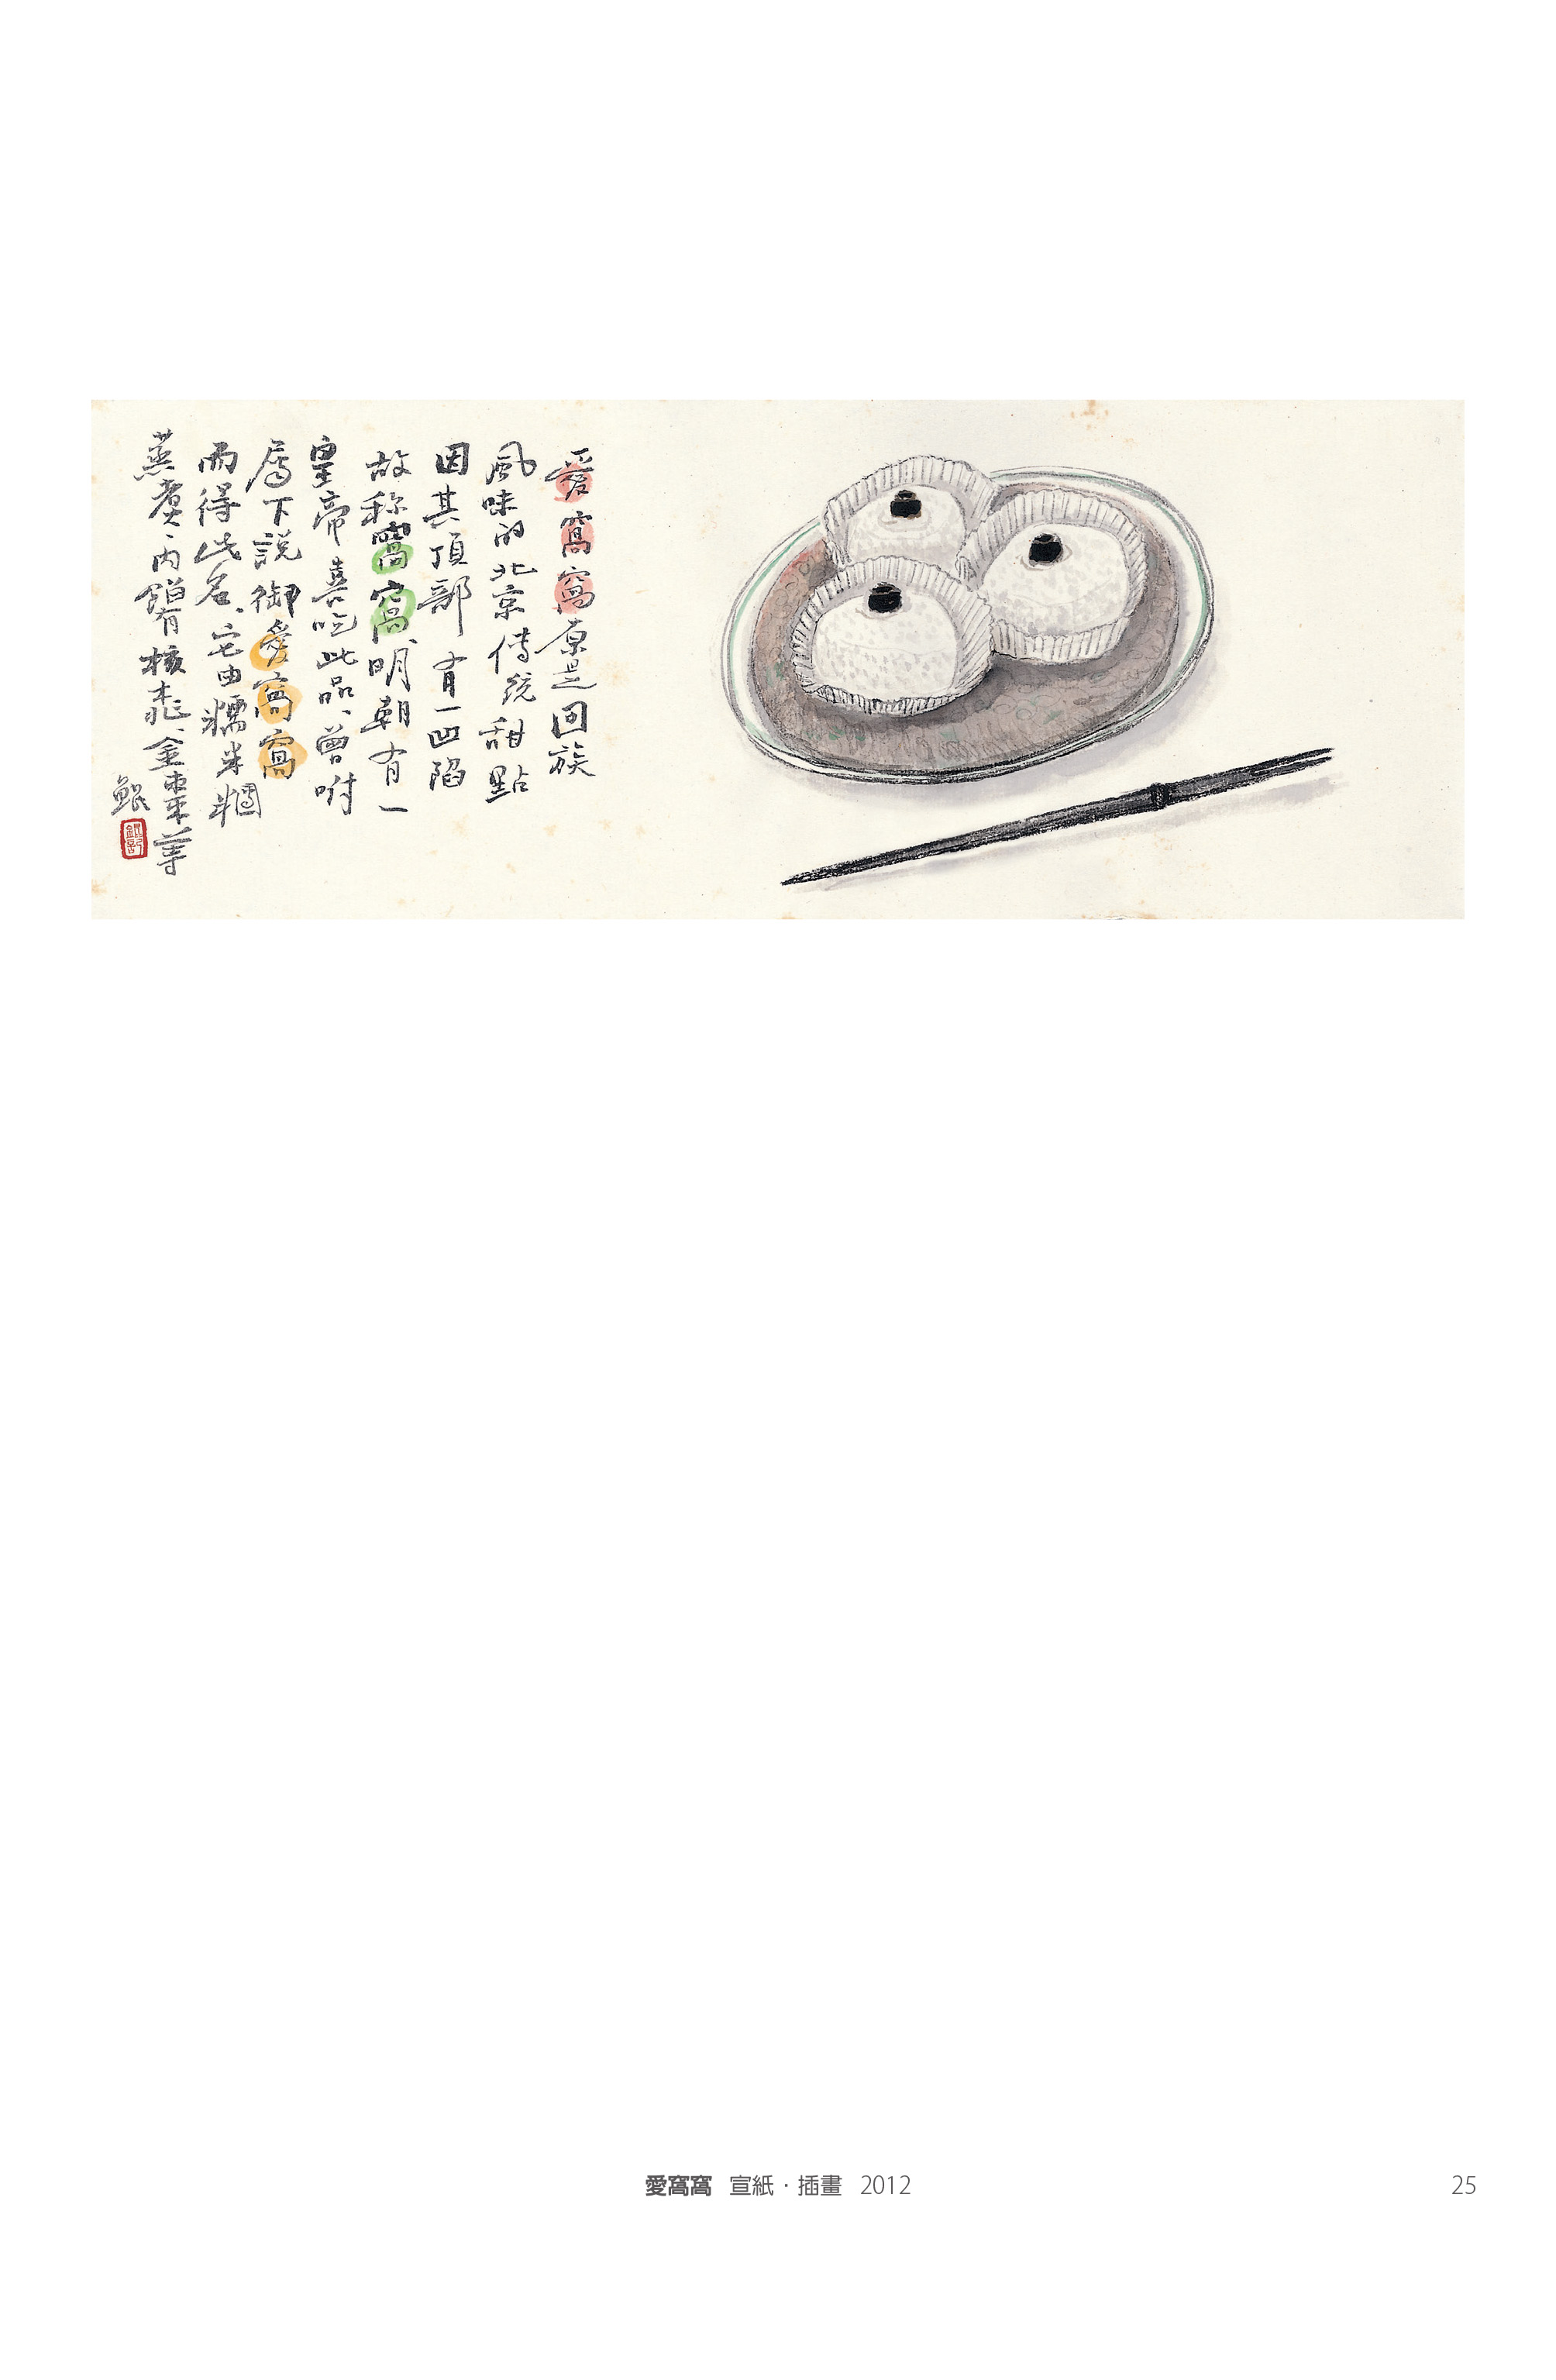 愛窩窩原是回族
風味的北京傳統甜點
因其頂部有一凹陷
故称窩窩、明朝有一
皇帝喜吃此品、曾咐
屬下説御愛窩窩
而得此名、它由糯米糰
蒸煮、内餡有核桃、金棗等
鯤
愛窩窩 宣紙·插畫 2012
25